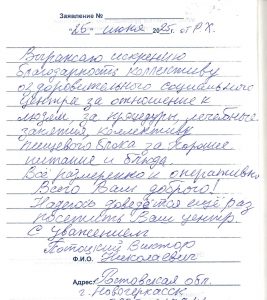 Заявление № 
"26" июня 2025 г. от Р.Х.
Выражаю искреннюю
благодарность коллективу
оздоровительного социального
центра за отношение к
людям, за процедуры, лечебные
занятия, коллективу
пищевого блока за хорошее
питание и блюда.
Всё размеренно и оперативно
Всего Вам дорого!
Надеюсь доведётся ещё раз
посетить Ваш центр.
С Уважением
Потоцкий Виктор
Ф.И.О. Николаевич
Адрес: Ростовская обл.
г. Новочеркасск